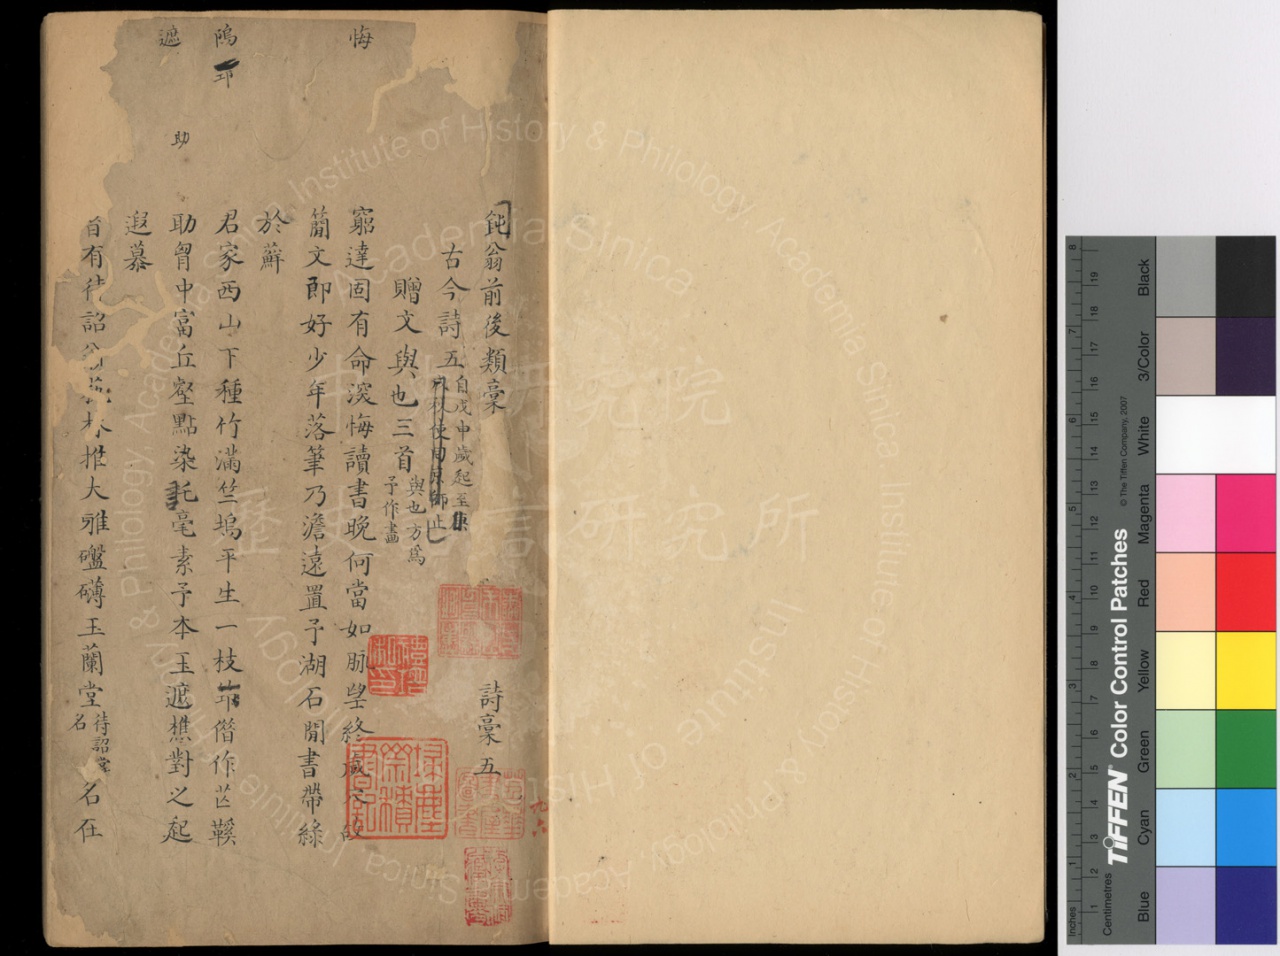 鈍翁前後類稾 詩稾五
古今詩五 自戊申歲起至
贈文與也三首 與也方爲予作畵
窮達固有命深悔讀書晚何當如脉望終歲
簡文即好少年落筆乃澹遠置予湖石閒書帶綠
於蘚
君家西山下種竹滿竺塢平生一枝筇僭作芒鞵
助胷中富丘壑點染託毫素予本玉遮樵對之起
遐慕
昔有待詔翁 林推大雅礛礴玉蘭堂 待詔堂名 名在
悔
隖
筇
遮
助
中央研究院
歷史語言研究所
Institute of History & Philology, Academia Sinica
掃塵齋積書記
禮培私印
Inches
Centimetres
1 2 3 4 5 6 7 8
1 2 3 4 5 6 7 8 9 10 11 12 13 14 15 16 17 18 19
TIFFEN® Color Control Patches
© The Tiffen Company, 2007
Blue
Cyan
Green
Yellow
Red
Magenta
White
3/Color
Black